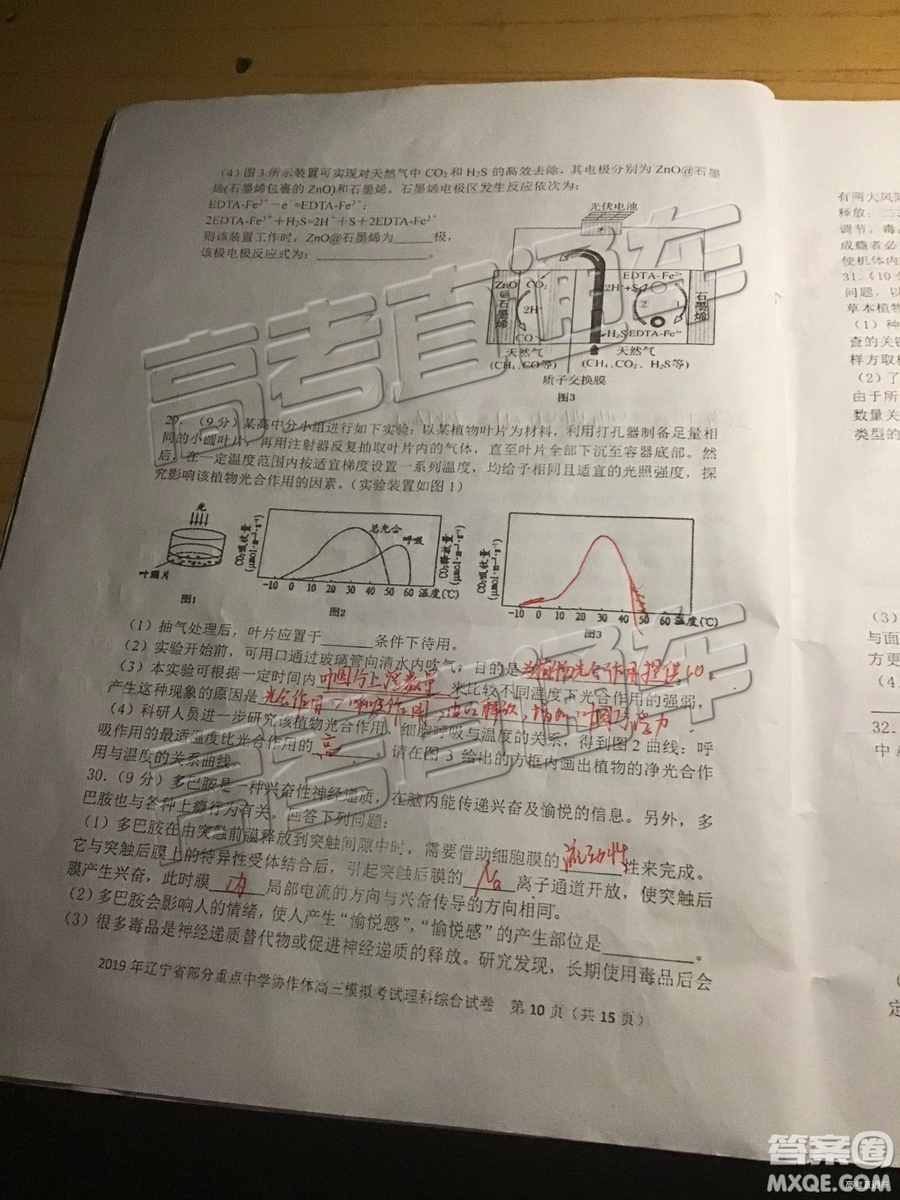 (4) 图3所示装置可实现对天然气中CO₂和H₂S的高效去除,其电极分别为ZnO@石墨
烯(石墨烯包裹的ZnO)和石墨烯。石墨烯电极区发生反应依次为:
EDTA-Fe²⁺-e⁻=EDTA-Fe³⁺;
2EDTA-Fe³⁺+H₂S=2H⁺+S+2EDTA-Fe²⁺
则该装置工作时,ZnO@石墨烯为______极,
该极电极反应式为:____________。
光伏电池
ZnO@石墨烯
CO₂
2H⁺
CO
EDTA-Fe²⁺
2H⁺+S
2
1
H₂S
EDTA-Fe³⁺
石墨烯
天然气
(CH₄、CO等)
天然气
(CH₄、CO₂、H₂S等)
质子交换膜
图3
29. (9分)某高中分小组进行如下实验:以某植物叶片为材料,利用打孔器制备足量相
同的小圆叶片,再用注射器反复抽取叶片内的气体,直至叶片全部下沉至容器底部。然
后,在一定温度范围内按适宜梯度设置一系列温度,均给予相同且适宜的光照强度,探
究影响该植物光合作用的因素。(实验装置如图1)
光
叶圆片
图1
CO₂吸收量
(μmol·m⁻²·s⁻¹)
总光合
呼吸
CO₂释放量
(μmol·m⁻²·s⁻¹)
-10 0 10 20 30 40 50 60 温度(℃)
图2
CO₂吸收量
(μmol·m⁻²·s⁻¹)
-10 0 10 20 30 40 50 60 温度(℃)
图3
(1)抽气处理后,叶片应置于______条件下待用。
(2)实验开始前,可用口通过玻璃管向清水内吹气,目的是为植物光合作用提供CO₂
(3)本实验可根据一定时间内叶圆片上浮数量来比较不同温度下光合作用的强弱,
产生这种现象的原因是光合作用>呼吸作用,
(4)科研人员进一步研究该植物光合作用、细胞呼吸与温度的关系,得到图2曲线:呼
吸作用的最适温度比光合作用的高______。请在图3给出的方框内画出植物的净光合作
用与温度的关系曲线。
30. (9分)多巴胺是一种兴奋性神经递质,在脑内能传递兴奋及愉悦的信息。另外,多
巴胺也与各种上瘾行为有关。回答下列问题:
(1)多巴胺在由突触前膜释放到突触间隙中时,需要借助细胞膜的流动性性来完成。
它与突触后膜上的特异性受体结合后,引起突触后膜的Na离子通道开放,使突触后
膜产生兴奋,此时膜内局部电流的方向与兴奋传导的方向相同。
(2)多巴胺会影响人的情绪,使人产生“愉悦感”,“愉悦感”的产生部位是________
(3)很多毒品是神经递质替代物或促进神经递质的释放。研究发现,长期使用毒品后会
2019年辽宁省部分重点中学协作体高三模拟考试理科综合试卷 第10页(共15页)
有两大风
释放:二、
调节。毒
成瘾者必
使机体内
31.(10
问题,以
草本植物
(1)种
查的关键
样方取
(2)了
由于所
数量关
类型的
(3)
与面
方更
(4
32.
中
定
高考直通车
高考直通车
答案圈
MXQE.COM